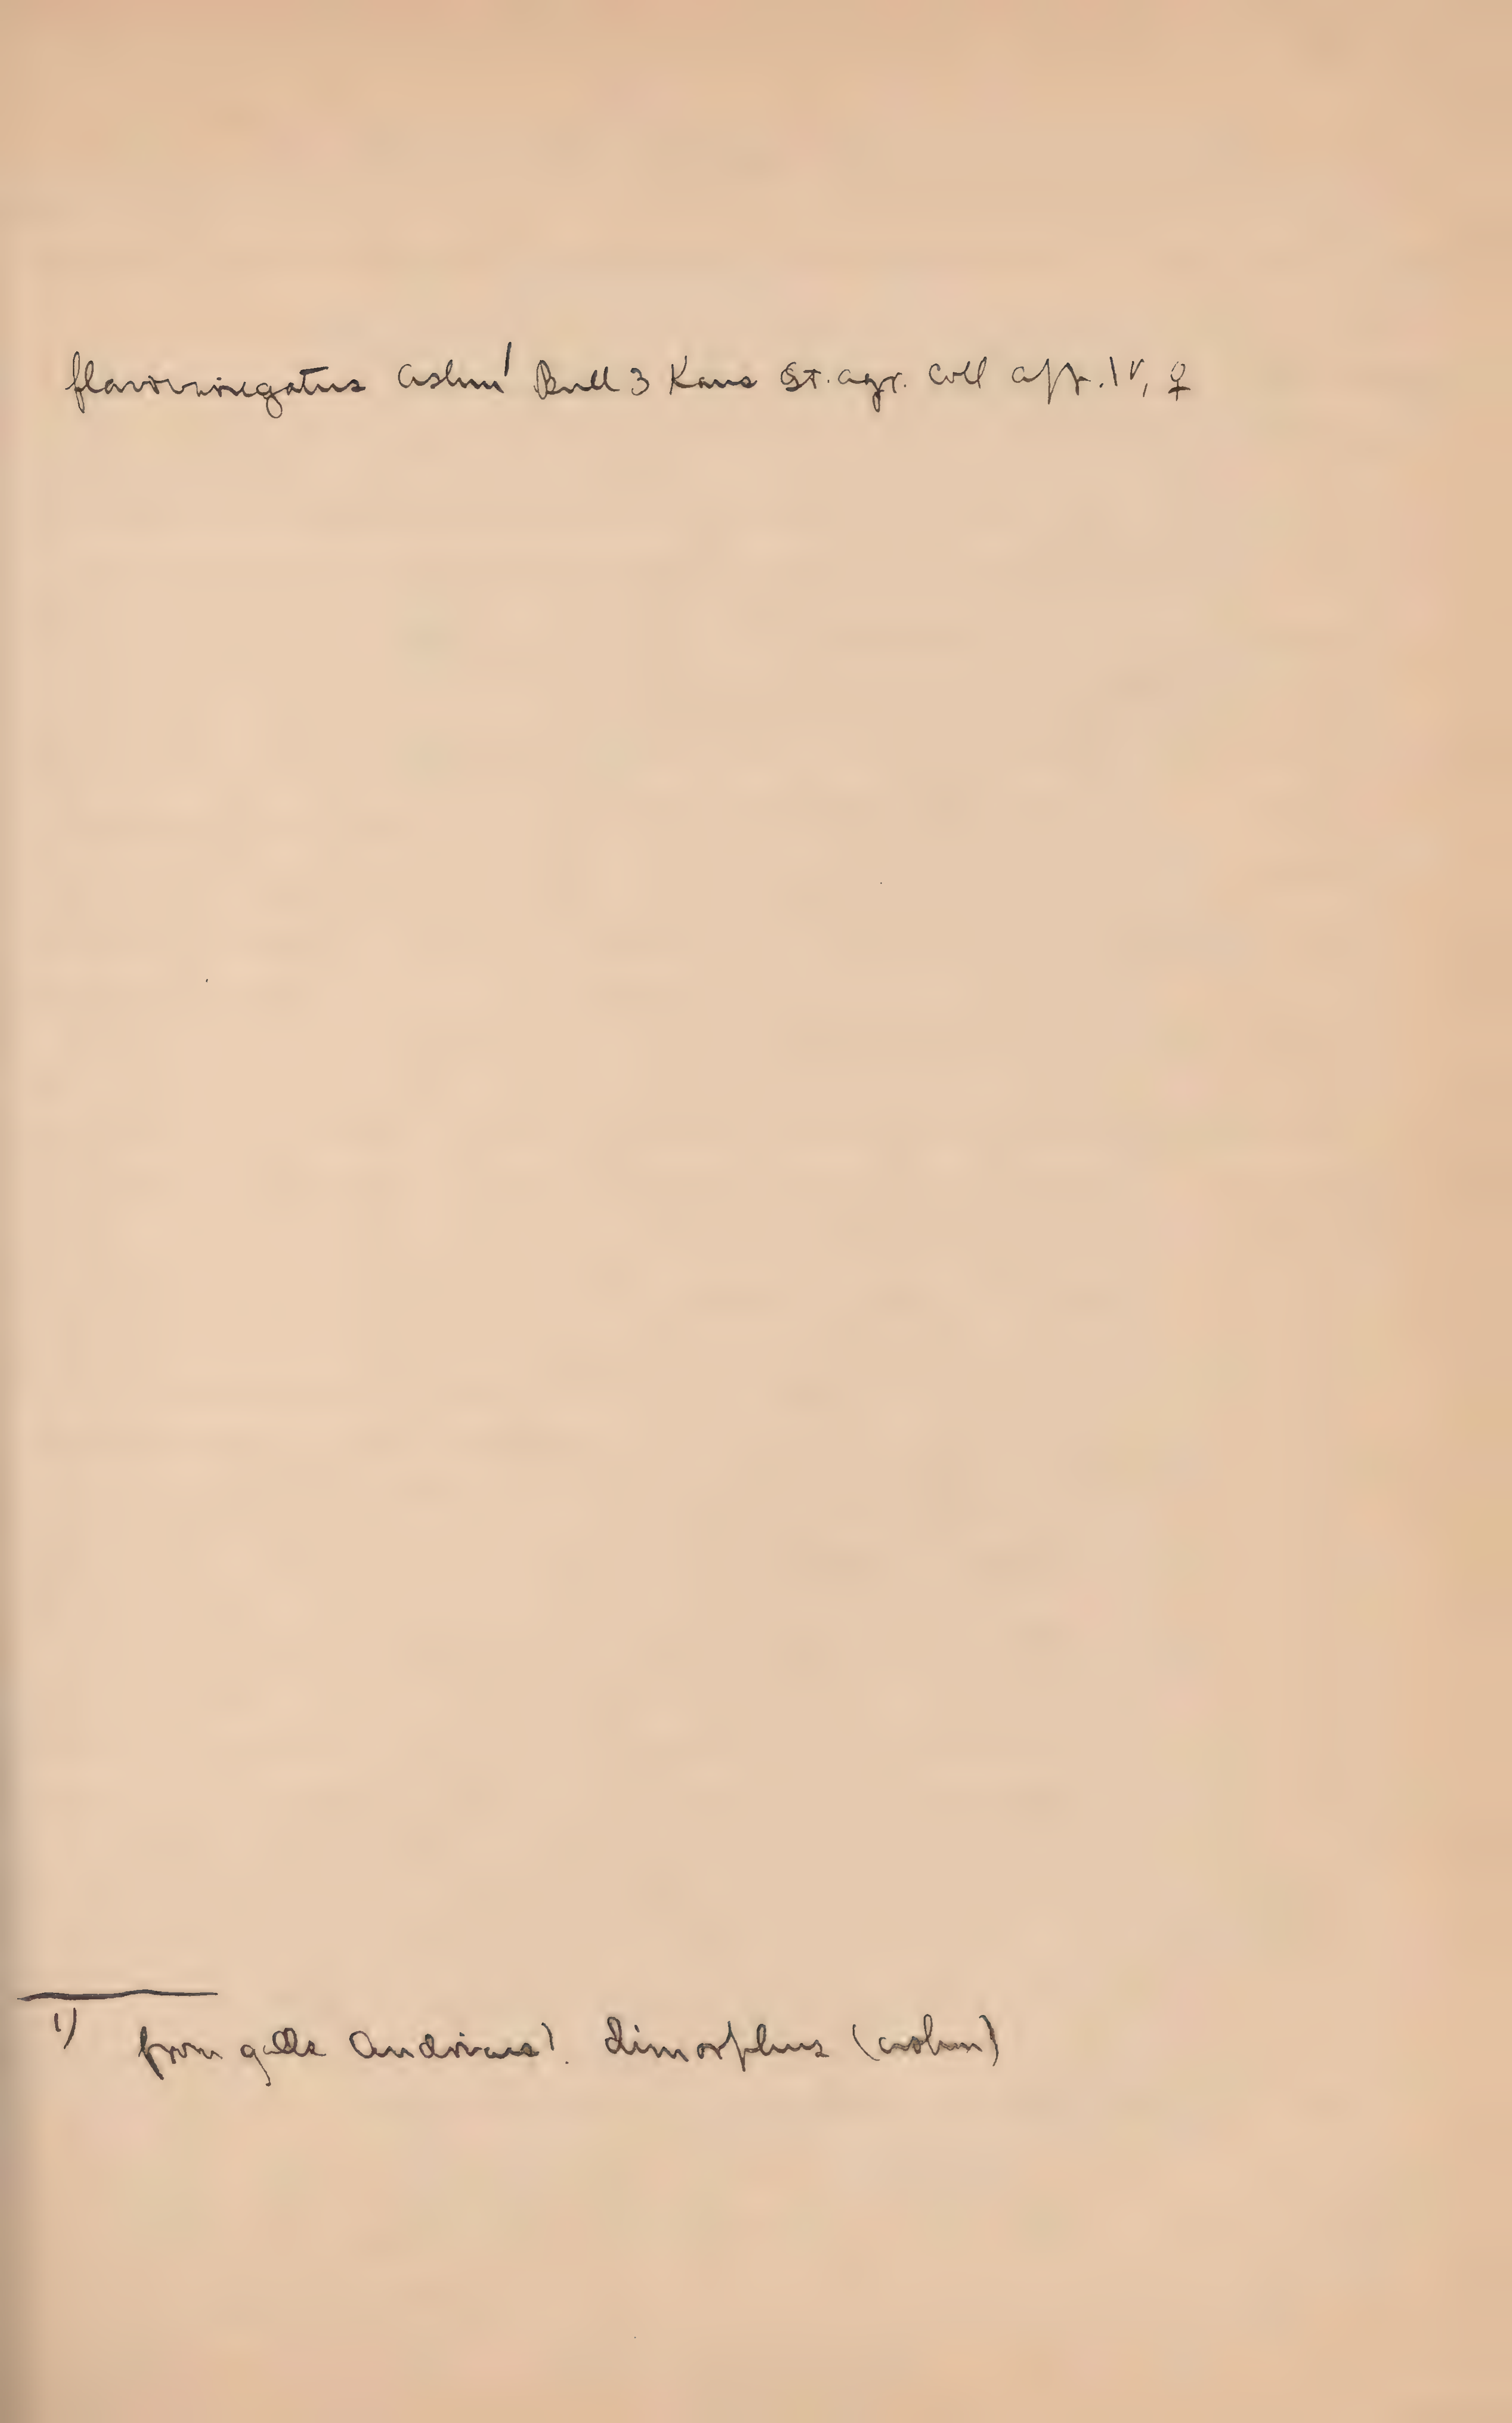 flavovariegatus Ashm' Bull 3 Kans St. agr. Coll app. IV, ♀
1) from galls Andricus). dimorphus (Ashm)